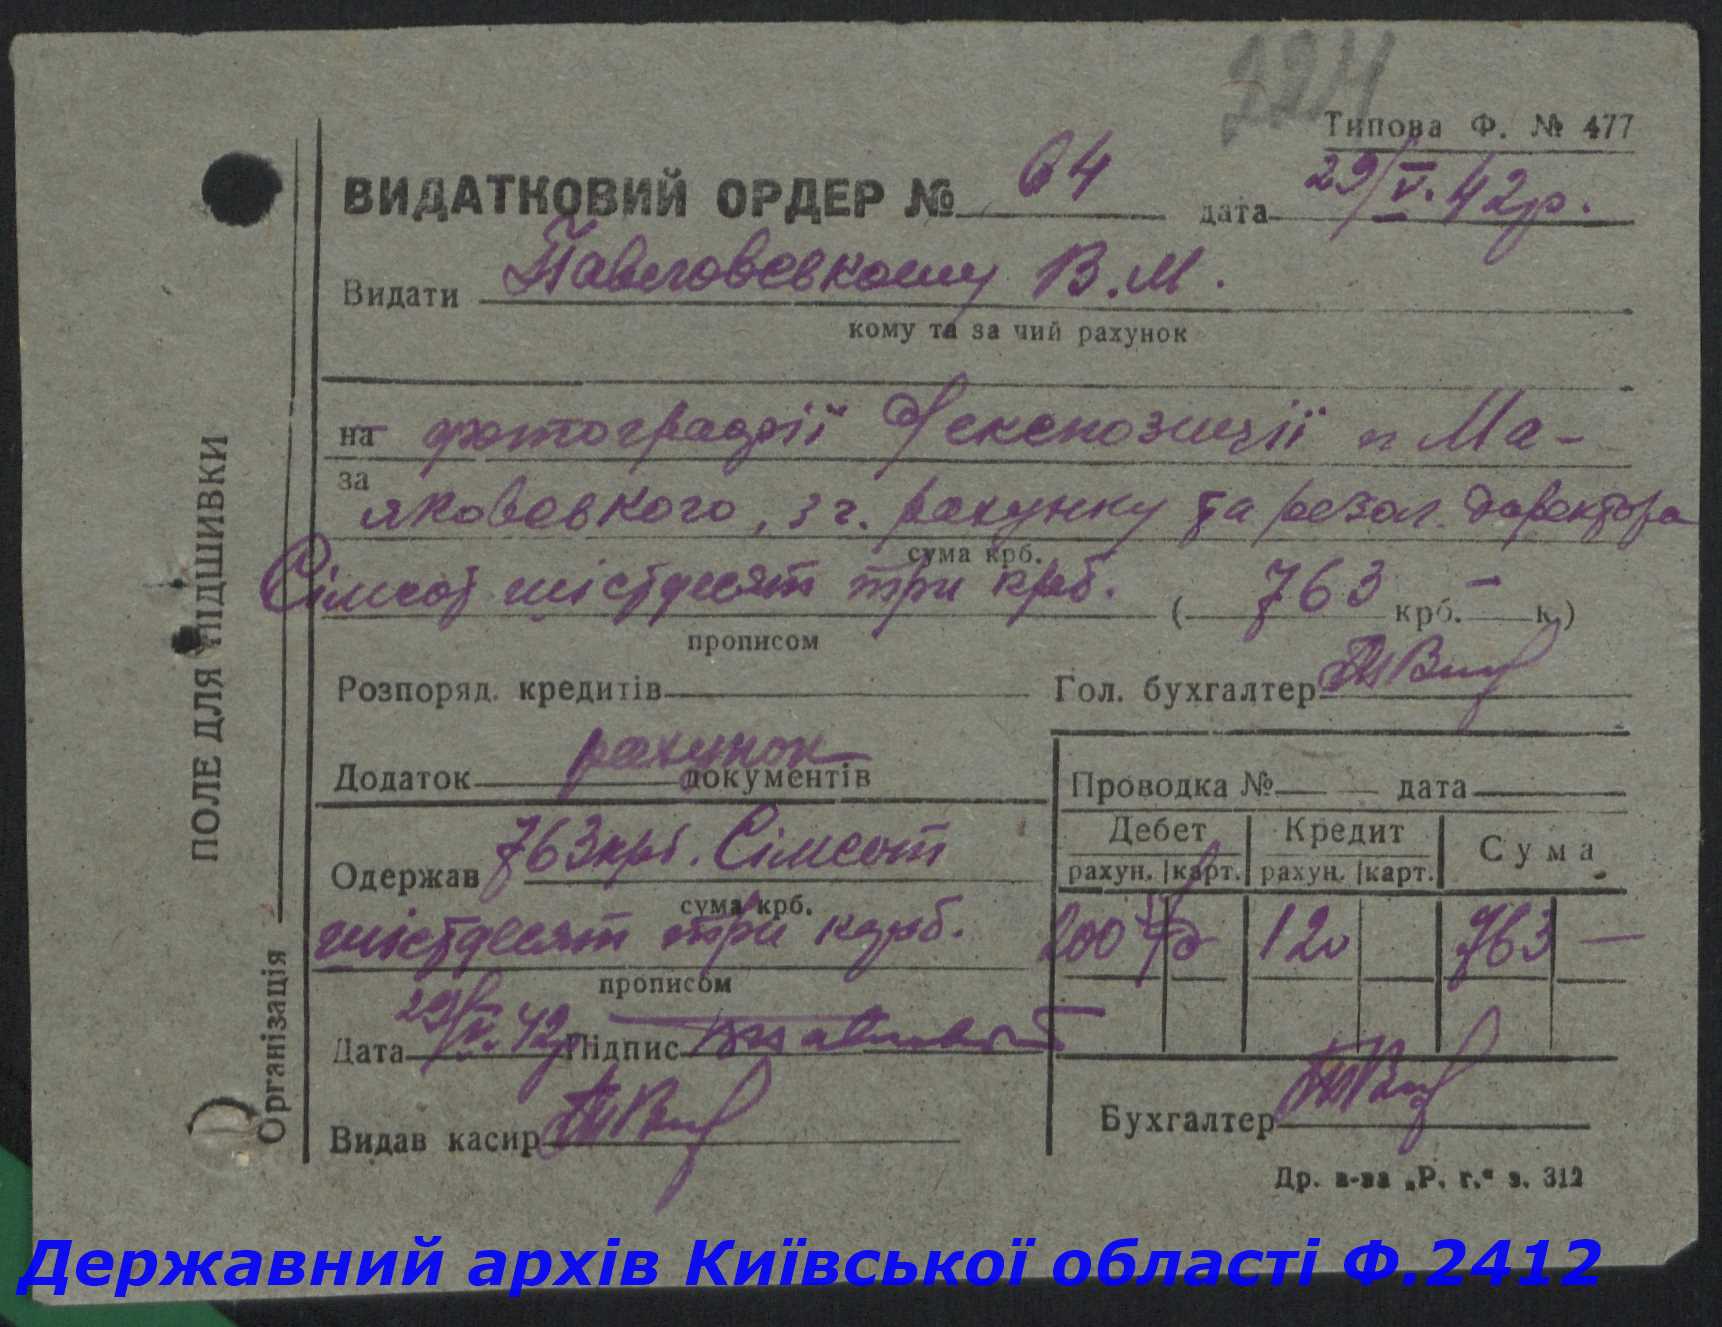 224
Типова Ф. № 477
ВИДАТКОВИЙ ОРДЕР № 64 дата 29/V.42р.
Видати Павловському В.М.
кому та за чий рахунок
на фотографії експозиції п Ма-
за
яковського, зг. рахунку та резол. директора
сума крб.
Сімсот шістдесят три крб. ( 763 крб. — к.)
прописом
Розпоряд. кредитів Гол. бухгалтер
Додаток рахунок документів
Проводка № дата
Дебет Кредит Сума
рахун. карт. рахун. карт.
Одержав 763 крб. Сімсот
сума крб.
шістдесят три карб.
200 120 763 —
прописом
Дата 29/V.42р Підпис
Видав касир
Бухгалтер
Др. в-ва „Р. г." з. 312
ПОЛЕ ДЛЯ ПІДШИВКИ
Організація
Державний архів Київської області Ф.2412